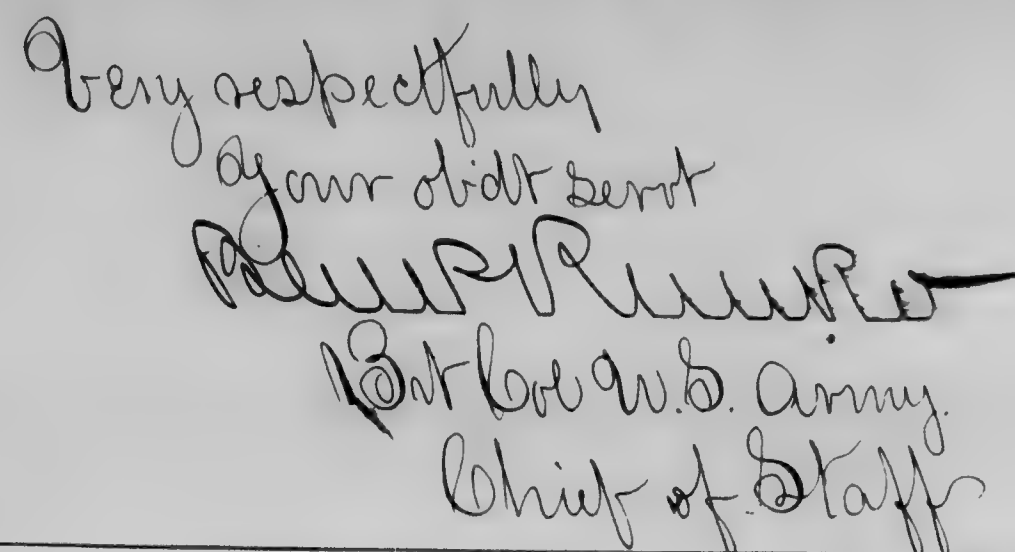 Very respectfully
Your obidt servt
Bvt Col U.S. Army.
Chief of Staff